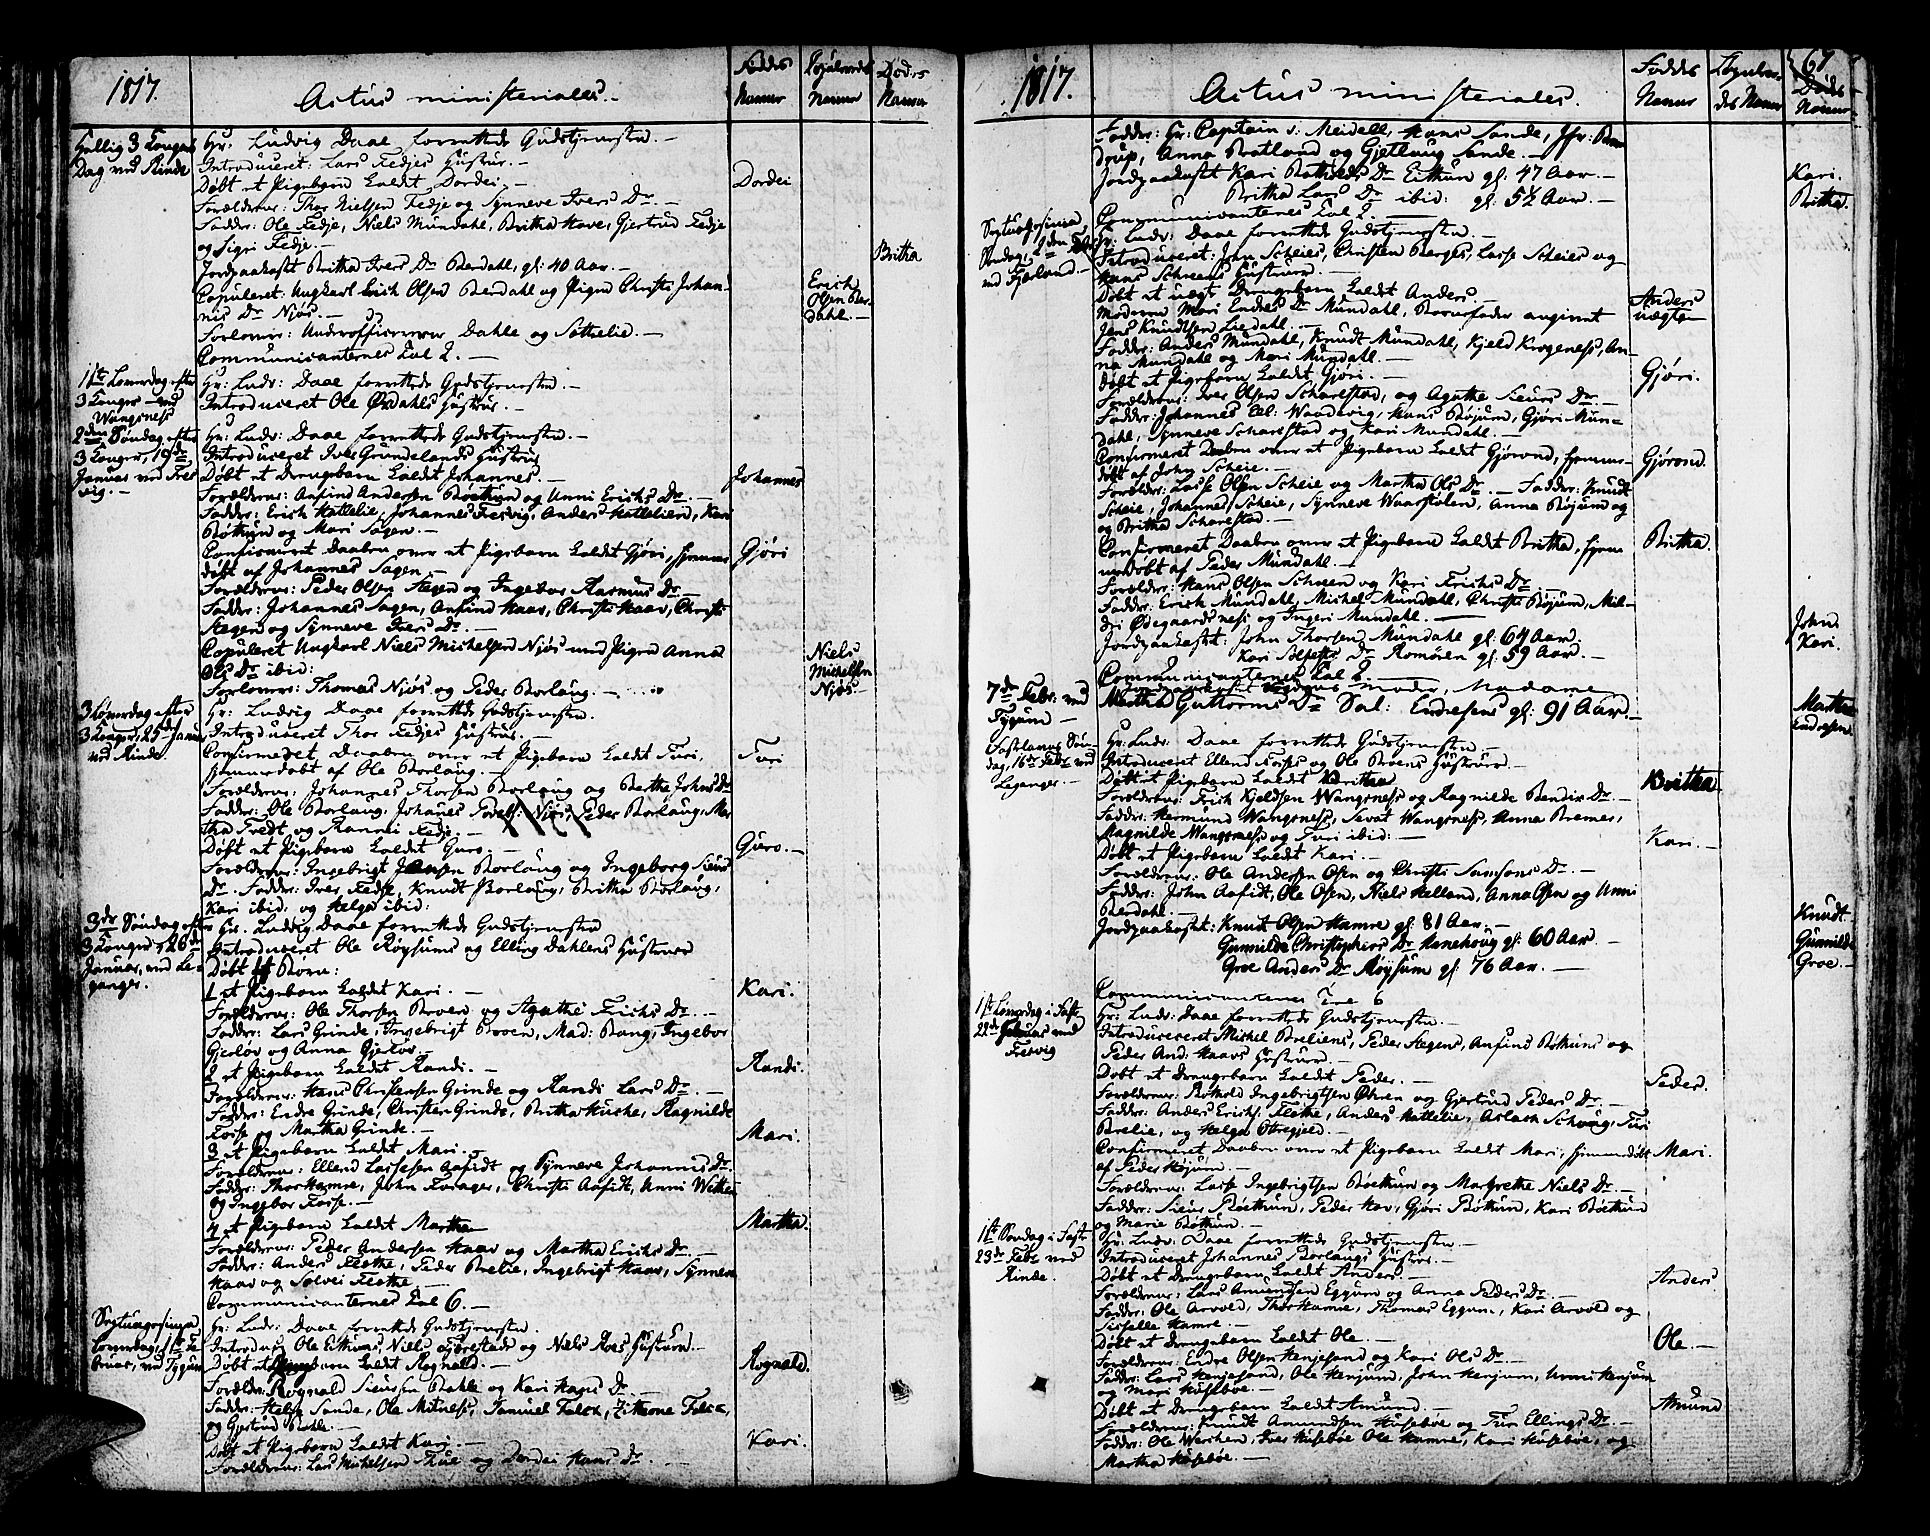 1817.
Actus ministeriales.
Fødtes Navne
Copuleredes Navne
Dødes Navne
Hellig 3 Konges
Dag ved Rinde
Hr. Ludvig Daae forrettede Gudstjenesten.
Introduceret: Lars Fedjes Hustrue.
Døbt et Pigebarn kaldet Dordei.
Dordei
Forældrene: Thor Nielsen Fedje og Synneve Ivers Dr.
Fadder: Ole Fedje, Niels Mundahl, Britha Hove, Gjertrud Fedje
og Sigri Fedje.
Jordpaakastet Britha Ivers Dr Berdahl, gl: 40 Aar.
Britha
Copuleret: Ungkarl Erich Olsen Berdahl og Pigen Christi Johan-
nis Dr. Njøs.
Erich
Olsen Ber-
dahl.
Forlover: Underofficerer Dahle og Sathelie.
Communicanternes Tal 2.
11te Løverdag efter
3 Konger ved
Wangsness
Hr: Ludv: Daae forrettede Gudstjenesten.
Introduceret Ole Ørdahls Hustrue.
2den Søndag efter
3 Konger, 19de
Januar ved Fres-
vig.
Hr: Ludv: Daae forrettede Gudstjenesten.
Introduceret Iver Grundelands Hustrue
Døbt et Drengebarn kaldet Johannes.
Johannes
Forældrene: Anfind Andersen Bøthun og Unni Erichs Dr.
Fadder: Erich Hattelie, Johannes Fresvig, Anders Hattelien, Kari
Bøthun og Mari Sagen.
Confirmeret Daaben over et Pigebarn kaldet Gjøri, hjemme-
døbt af Johannes Sagen.
Gjøri
Forældrene: Peder Olsen Stegen og Ingebor Rasmus Dr.
Fadder: Johannes Sagen, Anfind Haav, Christi Haav, Christi
Stegen og Synneve Ivers Dr.
Copuleret Ungkarl Niels Michelsen Njøs med Pigen Anna
Ols Dr ibid:
Niels
Michelsen
Njøs.
Forlover: Thomas Njøs og Peder Borlaug.
3 Løverdag efter
3 Konger, 25de Januar
ved Rinde.
Hr: Ludvig Daae forrettede Gudstjenesten.
Introduceret Thor Fedjes Hustrue.
Confirmeret Daaben over et Pigebarn kaldet Turi,
hjemmedøbt af Ole Borlaug.
Turi
Forældrene: Johannes Thorsen Borlaug og Berthe Johns Dr
Fadder: Ole Borlaug, Njøs, Peder Borlaug, Mar-
tha Tredt og Ranni Fedje.
Døbt et Pigebarn kaldet Guro.
Guro.
Forældrene: Ingebrigt Jensen Borlaug og Ingeborg Siurs
Dr. Fadder: Iver Fedje, Knudt Borlaug, Britha Borlaug,
Kari ibid, og Helga ibid:
3de Søndag efter
3 Konger, 26de
Januar, ved Le-
ganger.
Hr. Ludvig Daae forrettede Gudstjenesten
Introduceret Ole Røysums og Elling Dahlens Hustruer
Døbt Born:
1 et Pigebarn kaldet Kari.
Kari.
Forældrene: Ole Thorsen Broen og Agathe Erichs Dr.
Fadder: Lars Grinde, Ingebrigt Broen, Mad: Bang, Ingebor
Gjerløv og Anna Gjerløv.
2 et Pigebarn kaldet Randi.
Randi.
Forældrene: Hans Christensen Grinde og Randi Lars Dr.
Fadder: Endre Grinde, Christen Grinde, Britha Husche, Ragnilde
Fosse og Martha Grinde.
3 et Pigebarn kaldet Mari.
Mari.
Forældrene: Ellend Lassesen Aafidt og Synneve Johannis Dr.
Fadder: Thor Hamre, John Forager, Christi Aafidt, Unni Wetten
og Ingebor Fosse.
4 et Pigebarn kaldet Martha
Martha.
Forældrene: Peder Andersen Haav og Martha Erichs Dr.
Fadder: Anders Flethe, Peder Brelie, Ingebrigt Haav, Synneve
Haav og Solvei Flethe.
Communicanternes Tal 6.
Septuagesima
Løverdag, 1ste Fe-
bruar, ved Tygum
Hr: Ludv: Daae forrettede Gudstjenesten.
Introduc: Ole Eithuns, Niels Fjærestads og Niels Roes Hustruer.
Døbt et barn kaldet Rognald.
Rognald.
Forældr: Rognald Siursen Bahle og Kari Hans Dr.
Fadder: Helge Sande, Ole Mitness, Samuel Falck, Falck,
og Gjertrud Bahle.
Døbt et Pigebarn kaldet Kari.
Kari.
Forældrene: Lars Michelsen Thue og Dordei Hans Dr.
1817.
Actus ministeriales.
67
Fødtes Navne
Copulere-des Navne
Dødes Navne
Fadder: Hr: Captain v: Meidell, Hans Sande, Jfr: Ben-
drup, Anna Brotland og Gjetlaug Sande.
Jordpaakastet Kari Botholfs Dr Eithun gl: 47 Aar.
Kari.
Britha Lars Dr ibid: gl: 5½ Aar.
Britha.
Communicanternes Tal 2.
Septuagesima
Søndag, 2den Febr
ved Fjærland
Hr: Ludv: Daae forrettede Gudstjenesten.
Introduceret: John Scheies, Christen Berges, Lasse Scheies og
Hans Schreens Hustruer.
Døbt et uægt. Drengebarn kaldet Anders.
Anders
uægte
Moderen Mari Endres Dr Mundahl, Barnefader angivet
Jens Knudtsen Liedahl.
Fadder: Anders Mundahl, Knudt Mundahl, Kjeld Krogeness, An-
na Mundahl og Mari Mundahl.
Døbt et Pigebarn kaldet Gjøri.
Gjøri.
Forældrene: Iver Olsen Scharestad, og Agathe Siurs Dr.
Fadder: Johannes Waadevig, Hans Bøjum, Gjøri Mun-
dahl, Synneve Scharestad og Kari Mundahl.
Confirmeret Daaben over et Pigebarn kaldet Gjørond, hjemme-
døbt af John Scheie.
Gjørond.
Forælder: Lasse Olsen Scheie og Martha Ols Dr. Fadder: Knudt
Scheie, Johannes Scheie, Synneve Waarstølen, Anna Bøjum og
og Britha Scharestad.
Confirmeret Daaben over et Pigebarn kaldet Britha, hjem-
medøbt af Peder Mundahl.
Britha.
Forælder: Hans Olsen Schreen og Kari Erichs Dr.
Fadder: Erich Mundahl, Michel Mundahl, Christi Bøjum, Mil-
dri Ødegaardsness og Ingeri Mundahl.
Jordpaakastet: John Thorsen Mundahl gl: 64 Aar.
John.
Kari Dr Romøren gl: 59 Aar.
Kari.
Communicanternes Tal 2.
7de Febr: ved
Tygum
Moder, Madame
Martha Guttorms Dr Sal: Endresens gl: 91 Aar.
Martha
Endresen
Fastelavns Søn-
dag, 16de Febr: ved
Leganger.
Hr: Ludv: Daae forrettede Gudstjenesten
Introduceret Ellend Fosses og Ole Broens Hustruer.
Døbt et Pigebarn kaldet Britha
Britha
Forældrene: Erich Kjeldsen Wangsness og Ragnilde Bendix Dr.
Fadder: Hermund Wangsness, Sevat Wangsness, Anna Bremes,
Magnilde Wangsness og Turi ibid:
Døbt et Pigebarn kaldet Kari.
Kari.
Forældrene: Ole Andersen Olsen og Christi Samsons Dr.
Fadder: John Aafidt, Ole Olsen, Niels Helland, Anna Olsen og Unni
Berdahl.
Jordpaakastet: Knudt Olsen Hamre gl: 81 Aar.
Knudt
Gunnilde Christophers Dr Hanehoug gl: 60 Aar.
Gunnilde
Groe Anders Dr Røysum gl: 76 Aar.
Groe.
Communicanternes Tal 6
1ste Løverdag i Faste
22de Februar ved
Fresvig
Hr: Ludv: Daae forrettede Gudstjenesten.
Introduceret Michel Breliens, Peder Stegens, Anfind Bøthuns og
Peder And: Haavs Hustruer.
Døbt et Drengebarn kaldet Peder.
Peder.
Forældrene: Bothold Ingebrigtsen Øhren og Gjertrud Peders Dr.
Fadder: Anders Erichs: Flethe, Anders Hattelie, Aslach Schoug, Turi
Brelie, og Helga Otregjeld.
Confirmeret Daaben over et Pigebarn kaldet Mari, hjemmedøbt
af Peder Højum.
Mari.
Forældrene: Lasse Ingebrigtsen Bøthun og Margrethe Niels Dr.
Fadder: Siur Bøthun, Peder Hav, Gjøri Bøthun, Kari Bøthun
og Marie Bøthun.
1ste Søndag i Faste
23de Febr ved
Rinde.
Hr: Ludv: Daae forrettede Gudstjenesten.
Introduceret Johannes Borlaugs Hustrue.
Døbt et Drengebarn kaldet Anders.
Anders
Forældrene: Lars Amundsen Eggum og Anna Peders Dr.
Fadder: Ole Arvold, Thor Hamre, Thomas Eggum, Kari Arvold og
Sisselle Hamre.
Døbt et Drengebarn kaldet Ole.
Ole.
Forældrene: Endre Olsen Henjesand og Kari Ols Dr.
Fadder: Lars Henjesand, Ole Henjum, John Henjum, Unni Henjum
og Mari Husebøe.
Døbt et Drengebarn kaldet Amund.
Amund
Forældrene: Knudt Amundsen Husebøe og Turi Ellings Dr.
Fadder: Ole Werchen, Iver Husebøe Ole Hamre, Kari Husebøe, og
Martha Husebøe.